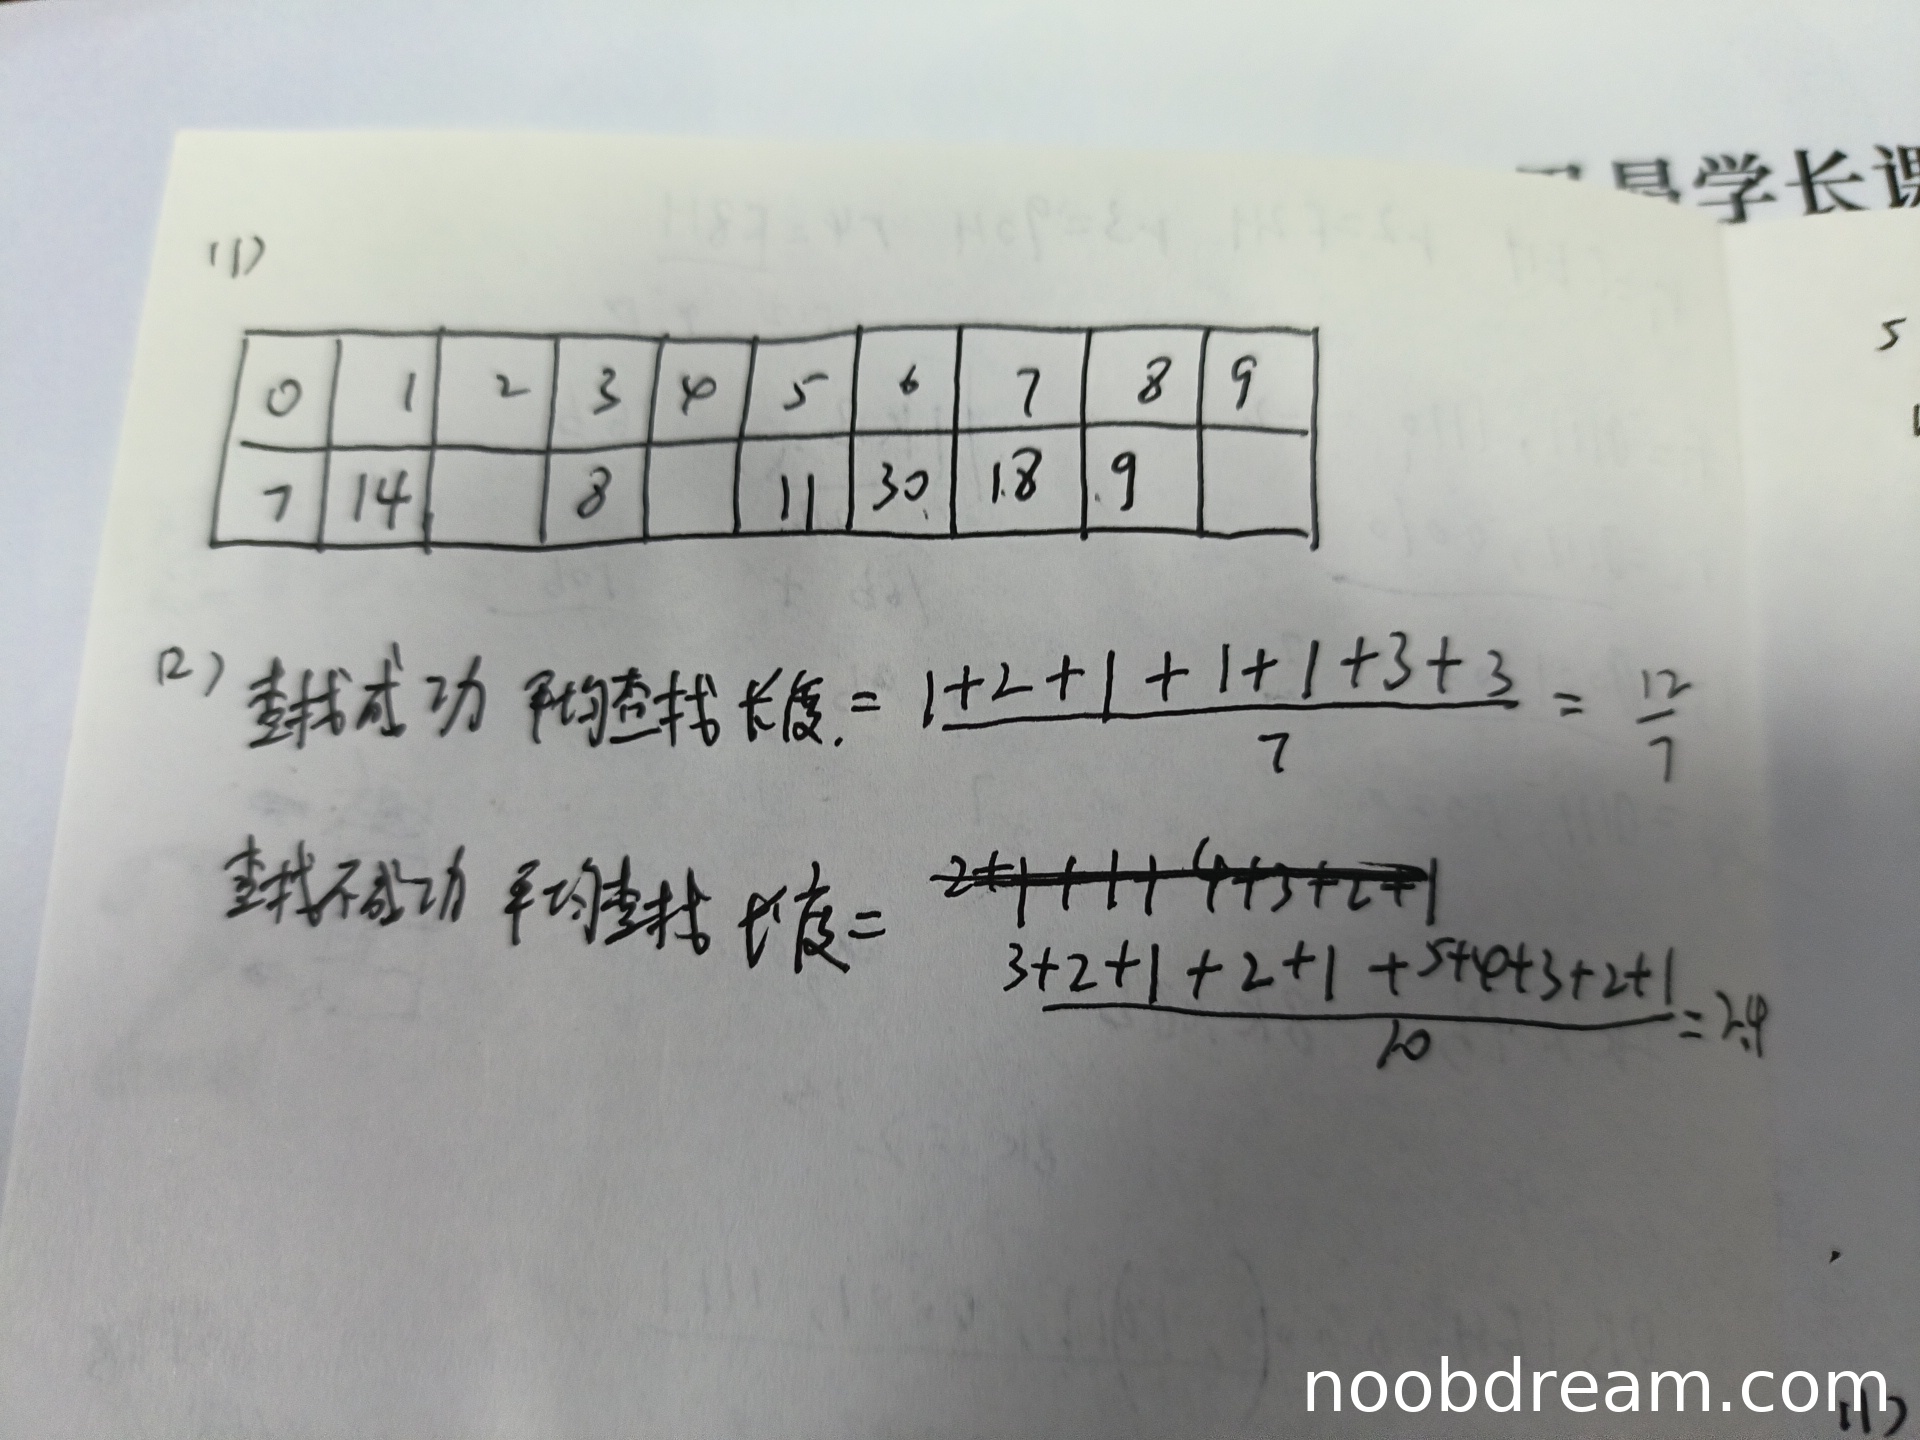 易学长课
(1)
0 1 2 3 4 5 6 7 8 9
7 14 8 11 30 18 9
5
(2) 查找成功 平均查找长度. = 1+2+1+1+1+3+3 / 7 = 12/7
查找不成功 平均查找长度 = 2+1+1+1+4+3+2+1
3+2+1+2+1+5+4+3+2+1 / 10 = 2.4
(1)
noobdream.com